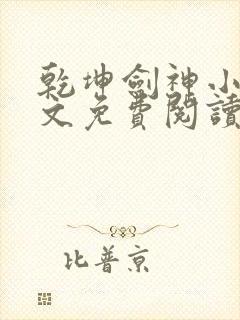 乾坤劍神小
文免費閱讀
比普京